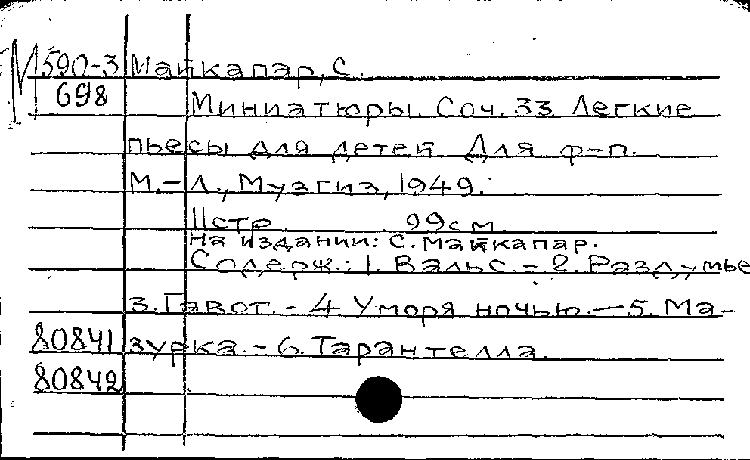 М 590-3 Майкапар, С.
698 Миниатюры. Соч. 33 Легкие
пьесы для детей Для ф-п.
М.-Л., Музгиз, 1949.
11стр 29см
На издании: С. Майкапар.
Содерж.: 1. Вальс. - 2. Раздумье
3. Гавот. - 4 У моря ночью. - 5. Ма-
80841 зурка. - 6. Тарантелла.
80842